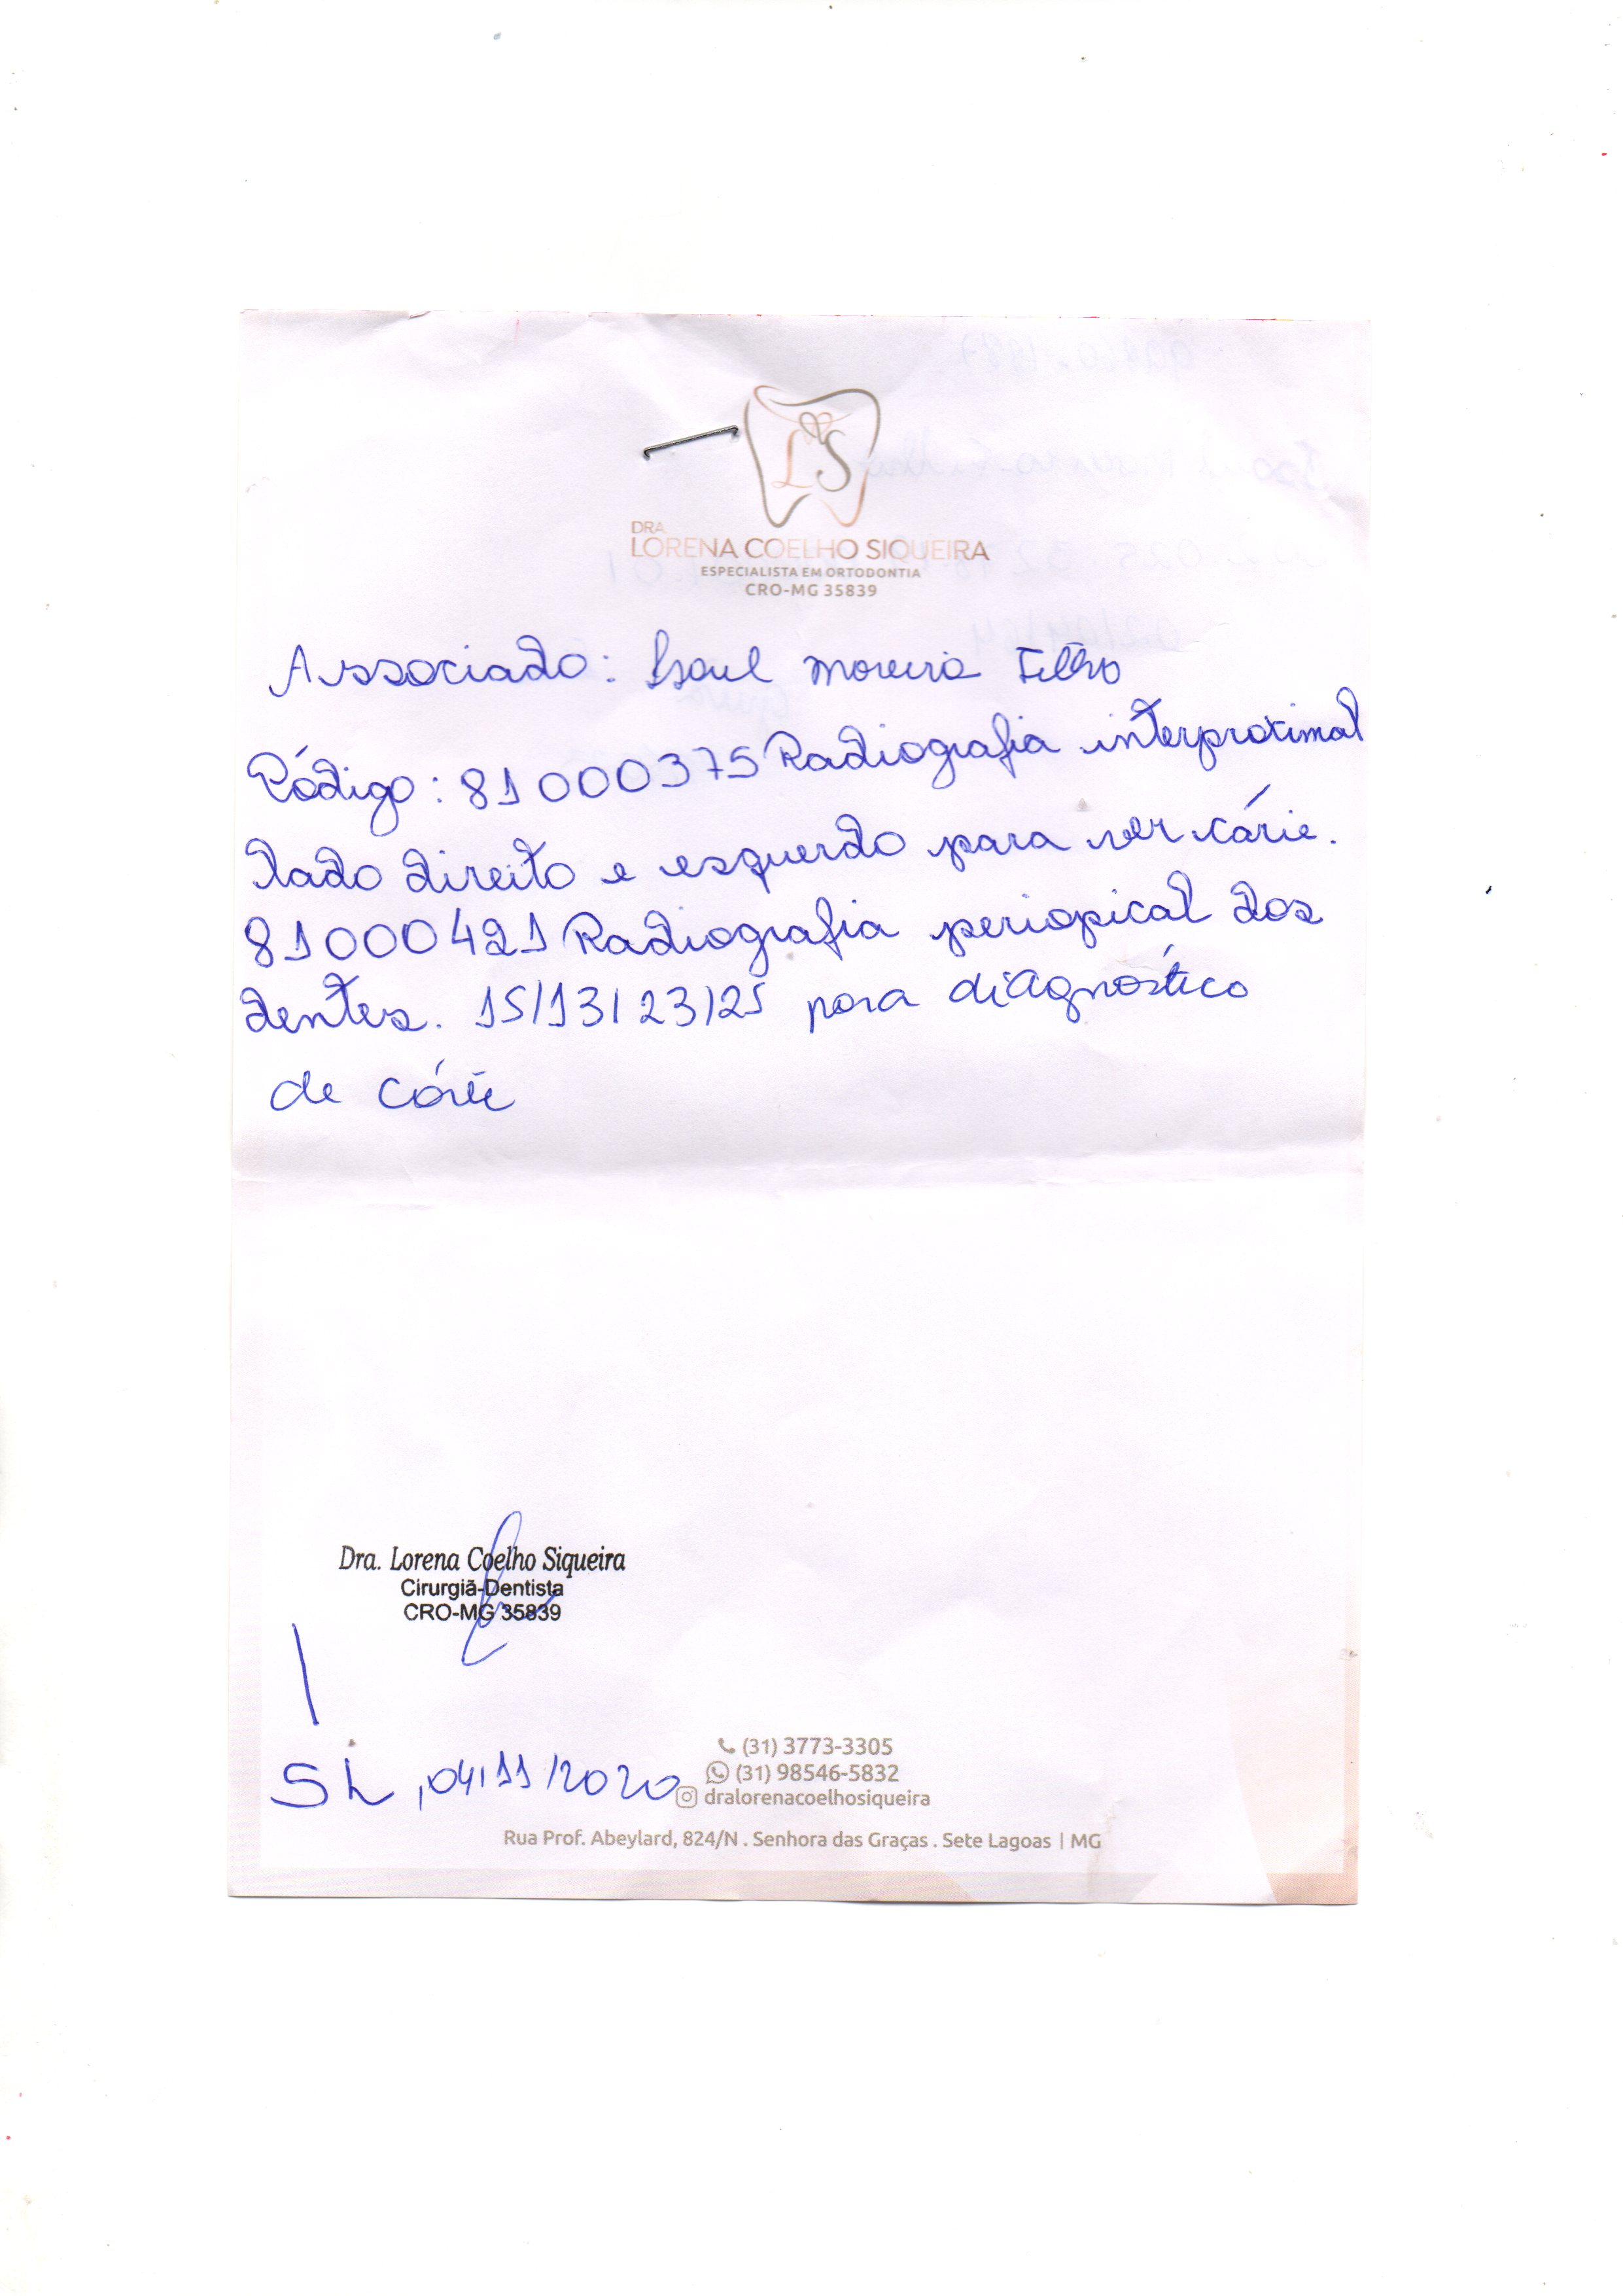 LS
DRA.
LORENA COELHO SIQUEIRA
ESPECIALISTA EM ORTODONTIA
CRO-MG 35839
Associado: Isael Moreira Filho
Código: 81000375 Radiografia interproximal
lado direito e esquerdo para ver cárie.
81000421 Radiografia periapical dos
dentes. 15/13/23/25 para diagnóstico
de cárie
Dra. Lorena Coelho Siqueira
Cirurgiã-Dentista
CRO-MG 35839
SL, 04/11/2020
(31) 3773-3305
(31) 98546-5832
dralorenacoelhosiqueira
Rua Prof. Abeylard, 824/N . Senhora das Graças . Sete Lagoas | MG